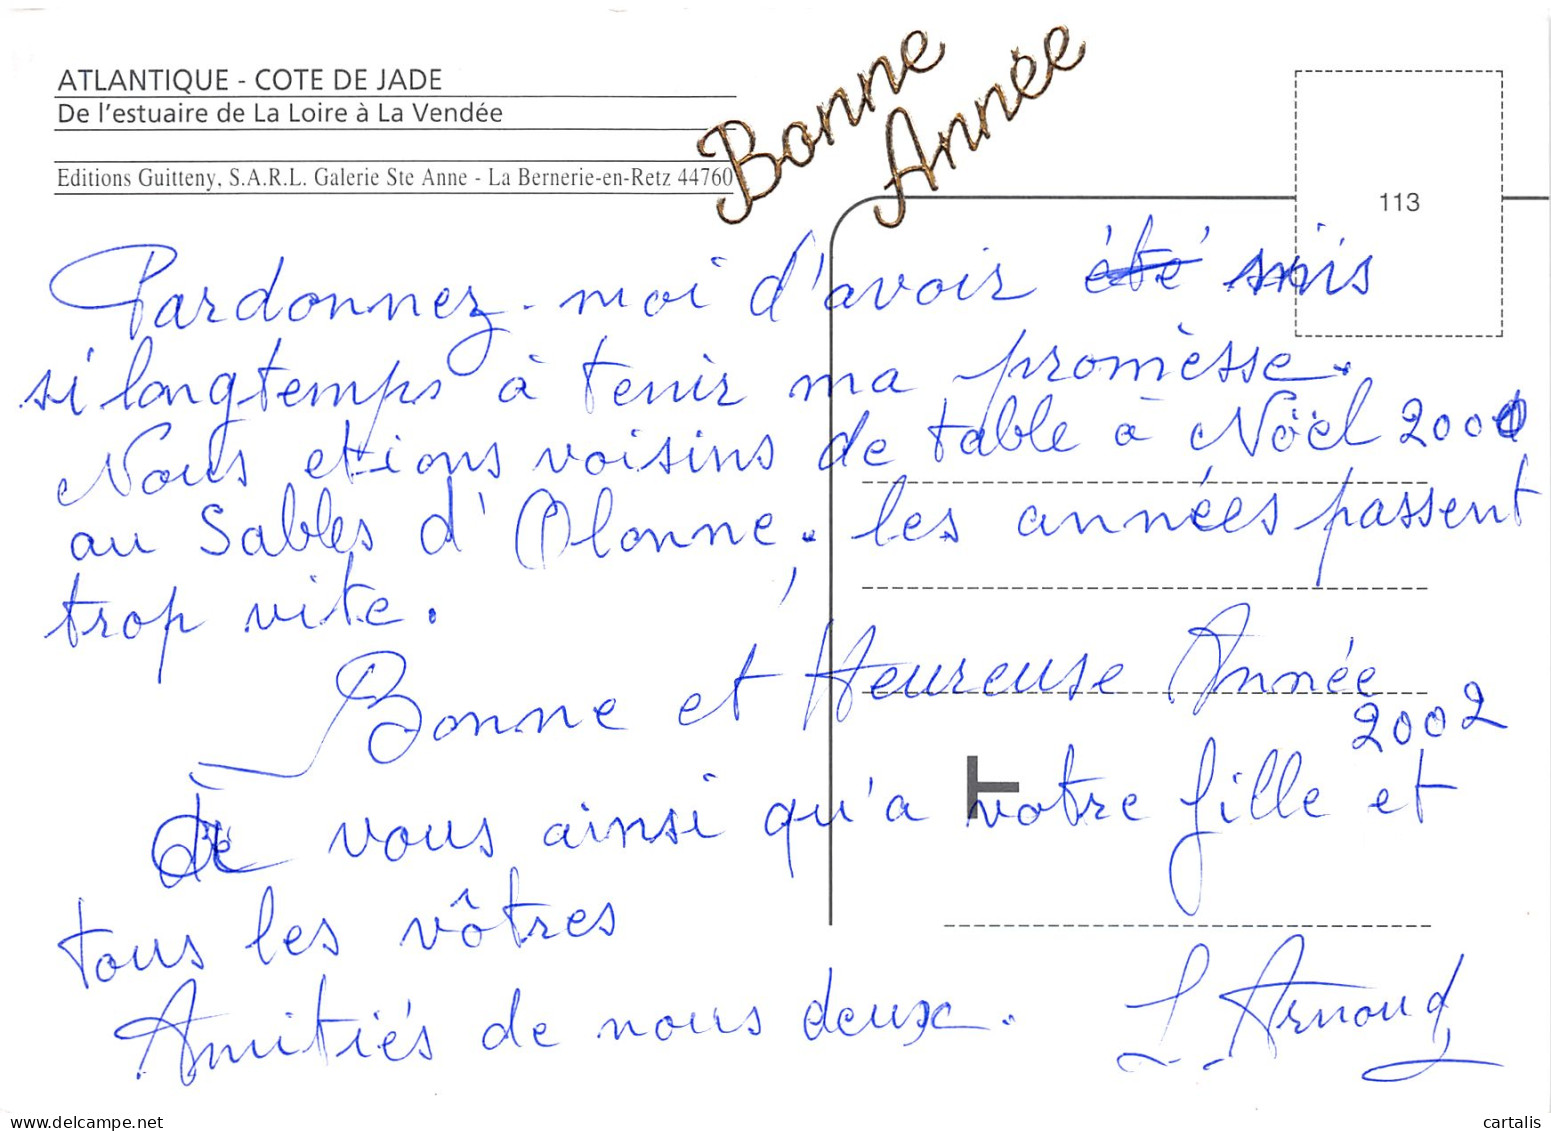 ATLANTIQUE - COTE DE JADE
De l'estuaire de La Loire à La Vendée
Editions Guitteny, S.A.R.L. Galerie Ste Anne - La Bernerie-en-Retz 44760
Bonne
Année
113
Pardonnez-moi d'avoir été mis
si longtemps à tenir ma promèsse.
Nous etions voisins de table à Nöel 2000
au Sables d'Olonne, les années passent
trop vite.
Bonne et Heureuse Année
2002
de vous ainsi qu'a votre fille et
tous les vôtres
Amitiés de nous deux.
L. Arnoud
cartalis